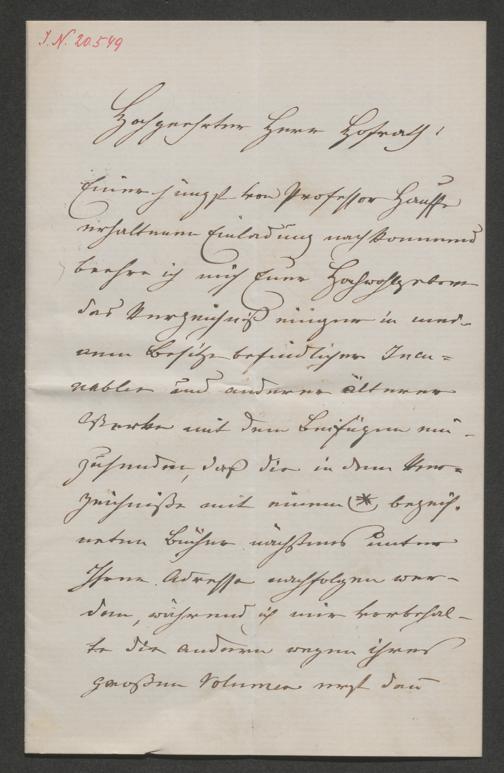 J. N. 20.549
Hochgeehrter Herr Hofrath!
Einer jüngst von Professor Hauffe
erhaltenen Einladung nachkommend
beehre ich mich Euer Hochwohlgeboren
das Verzeichniß einiger in mei-
nem Besitze befindlicher Incu=
nablen und anderer älterer
Werke mit dem Beifügen ein-
zusenden, daß die in dem Ver=
zeichniße mit einem (*) bezeich-
neten Bücher nächstens unter
Ihrer Adresse nachfolgen wer-
den, während ich mir vorbehal-
te die andern wegen ihres
großen Volumens erst dan̄